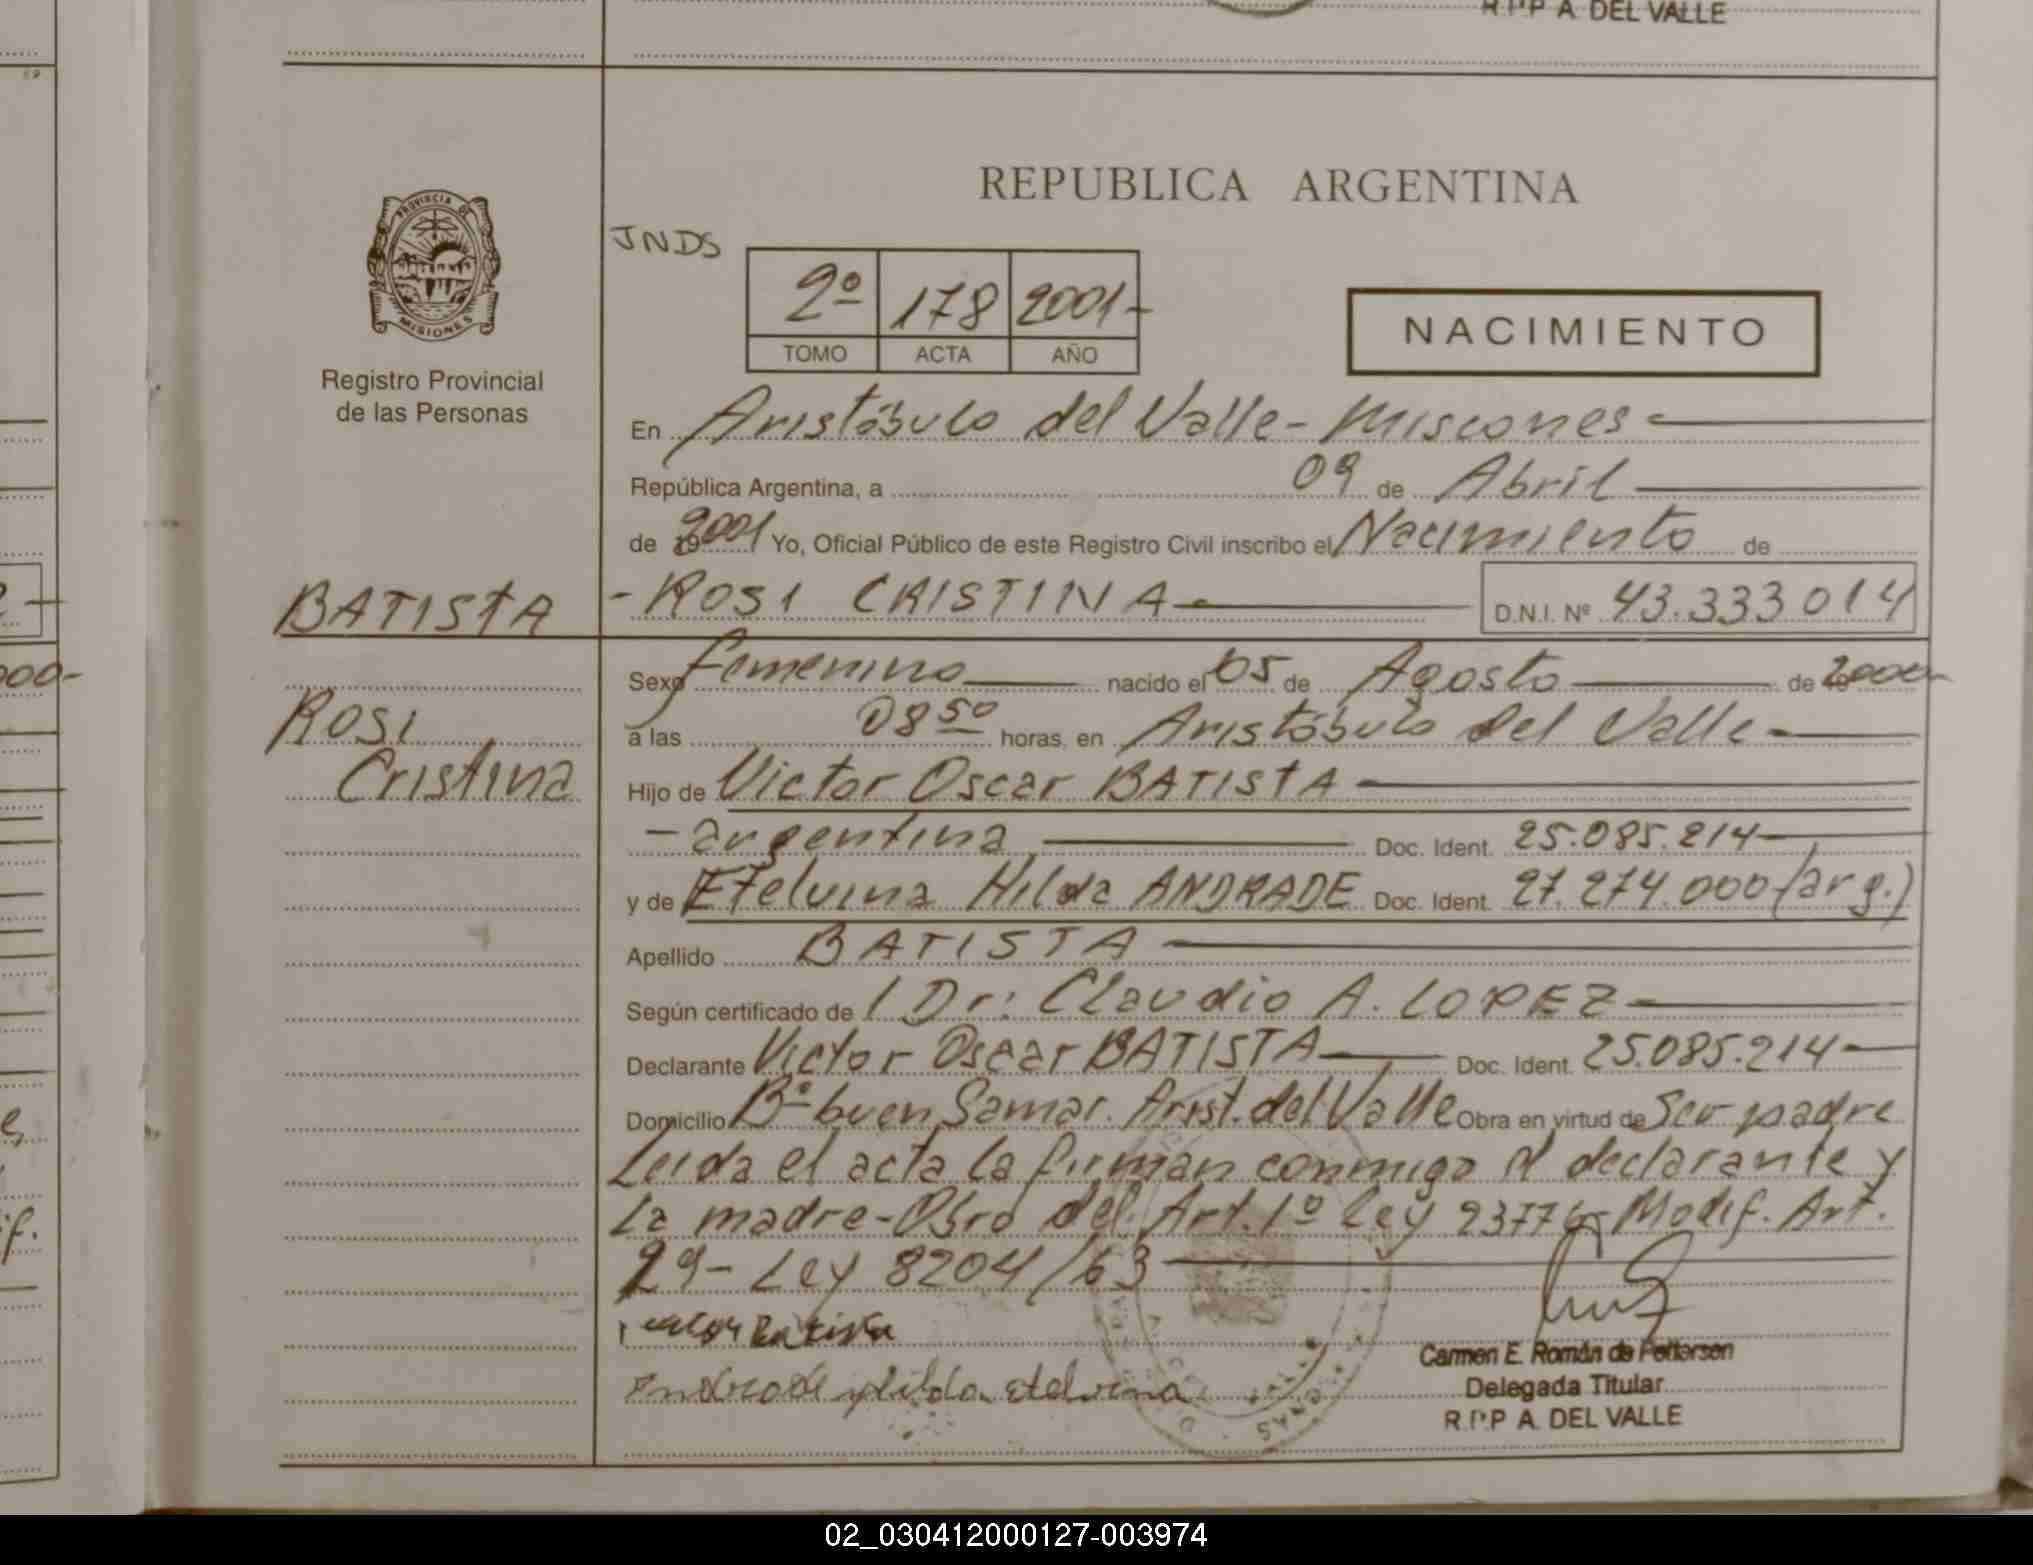 R.P.P A. DEL VALLE
REPUBLICA ARGENTINA
PROVINCIA DE
MISIONES
Registro Provincial
de las Personas
JNDS
2º 178 2001-
TOMO ACTA AÑO
NACIMIENTO
En Aristóbulo del Valle - Misiones
República Argentina, a 09 de Abril
de 2001 Yo, Oficial Público de este Registro Civil inscribo el Nacimiento de
BATISTA - ROSI CRISTINA D.N.I. Nº 43.333014
Sexo Femenino nacido el 05 de Agosto de 2000-
Rosi
a las 08 50 horas, en Aristóbulo del Valle
Cristina
Hijo de Victor Oscar BATISTA
- argentina Doc. Ident. 25.085.214
y de Etelvina Hilda ANDRADE Doc. Ident. 27.274.000 (arg.)
Apellido BATISTA
Según certificado de l Dr: Claudio A. LOPEZ
Declarante Victor Oscar BATISTA Doc. Ident. 25.085.214
Domicilio Bº buen Samar. Arist. del Valle Obra en virtud de Ser padre
Leida el acta la firman conmigo el declarante y
La madre - Obro del Art. 1º Ley 23776 - Modif. Art.
29 - Ley 8204/63
Batista
Andrade Hilda etelvina
Carmen E. Román de Pettersen
Delegada Titular
R.P.P A. DEL VALLE
02_030412000127-003974